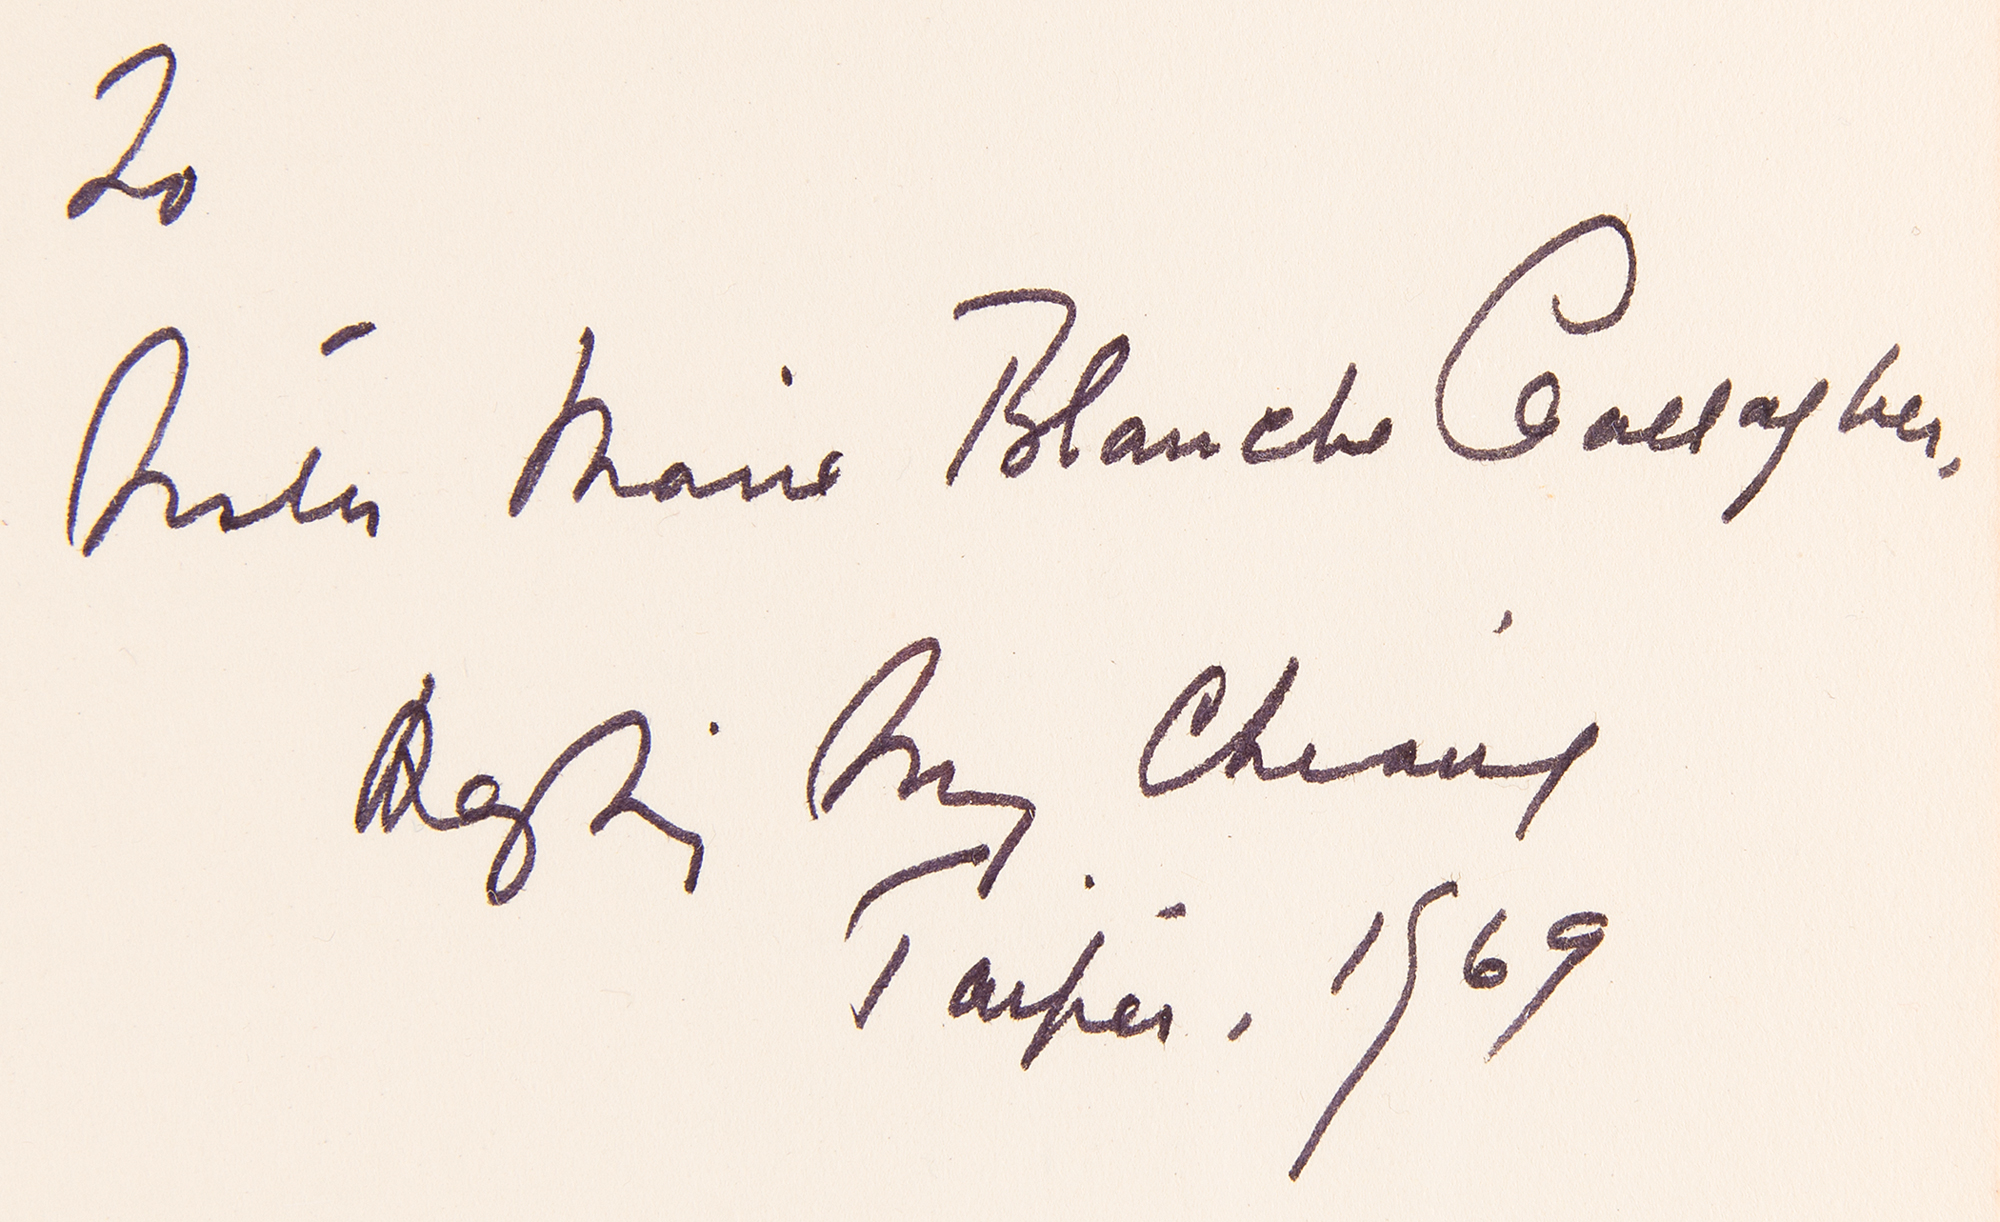 To
Sister Marie Blanche Gallagher,
Mayling Soong Chiang
Taipei. 1969